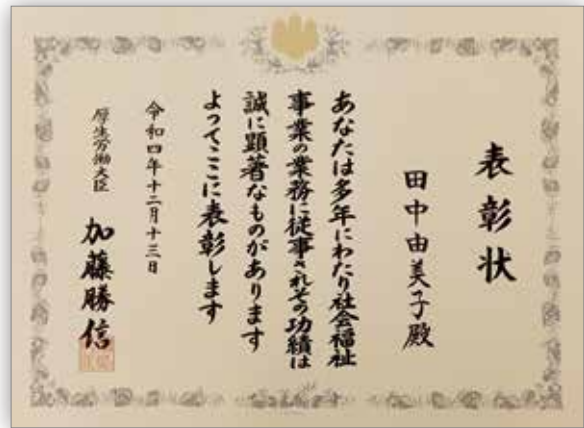 表彰状
田中由美子殿
あなたは多年にわたり社会福祉
事業の業務に従事されその功績は
誠に顕著なものがあります
よってここに表彰します
令和四年十二月十三日
厚生労働大臣
加藤勝信